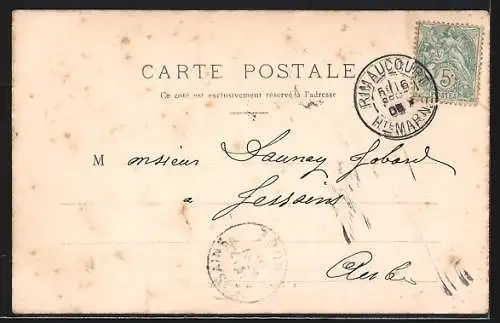 CARTE POSTALE
Ce coté est exclusivement réservé à l'adresse
RIMAUCOURT
16
05
Hte MARNE
5c
M onsieur Launay Jobard
a Jessains
Aube